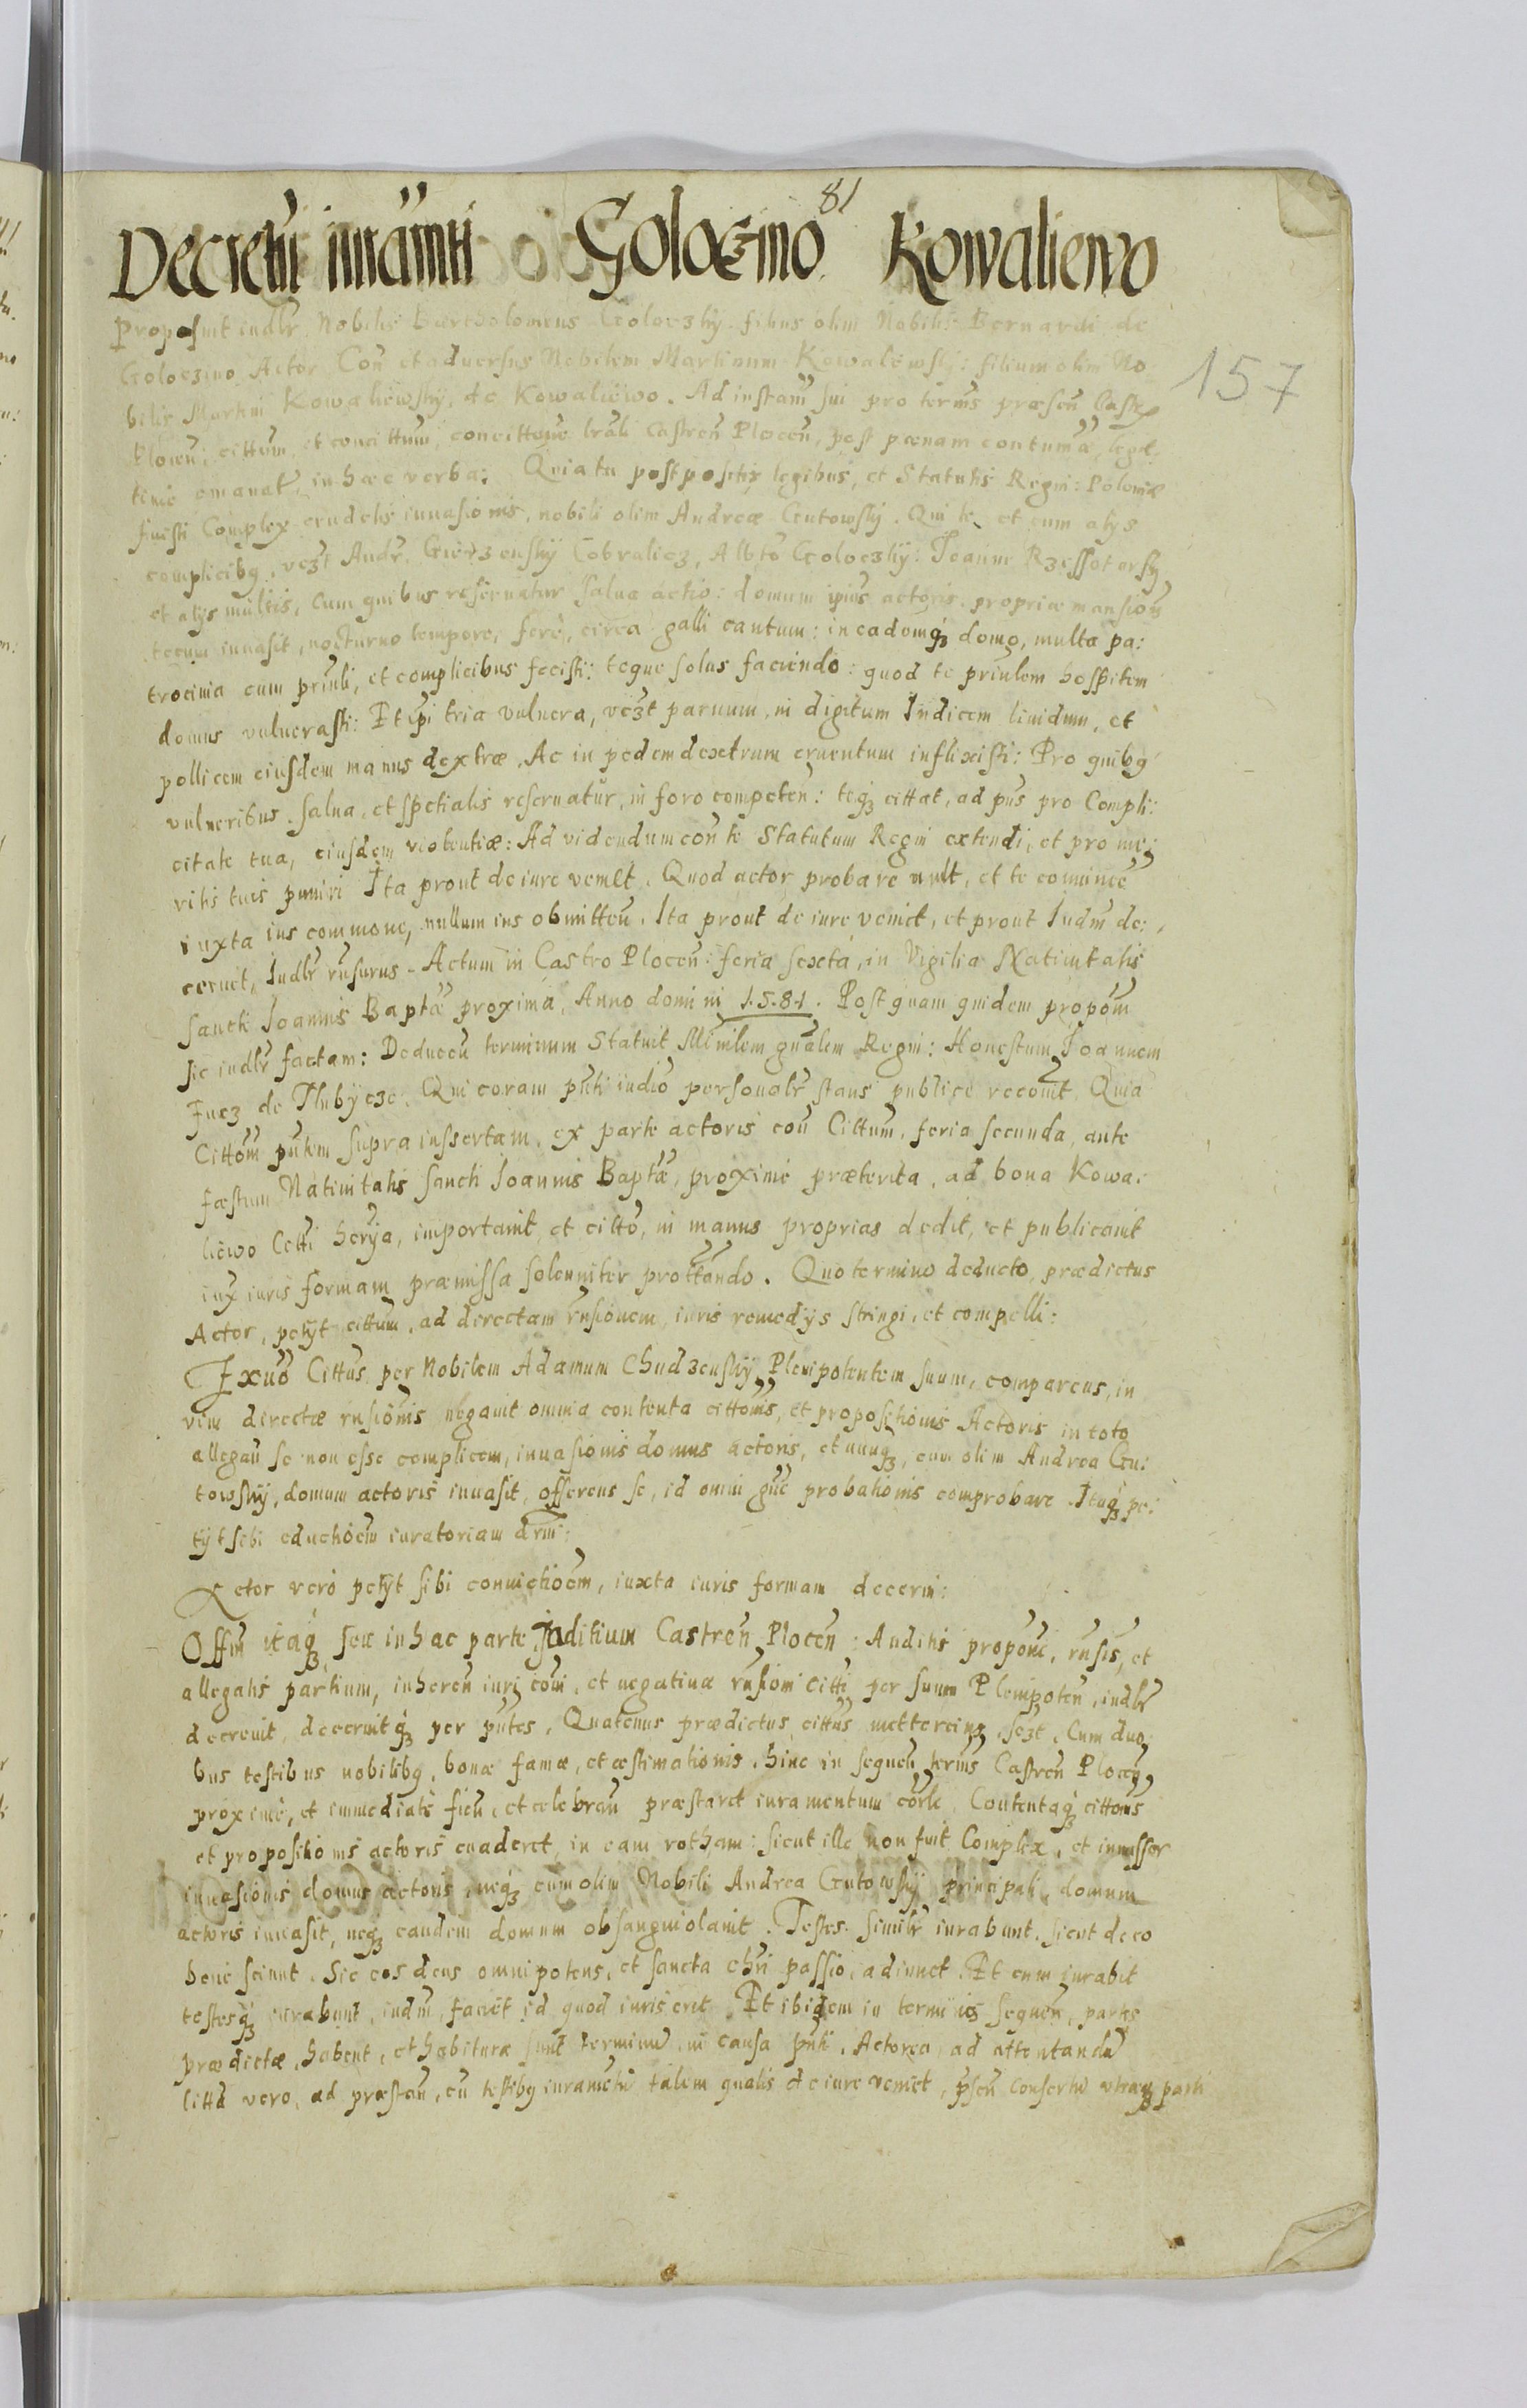 81
157
Decretu iuramti Goloczino Kowaliewo
Proposuit iudlr Nobilis Bartholomeus Goloczky filius olim Nobilis Bernardi de
Goloczino Actor Con et aduersus Nobilem Martinum Kowalewsky: filium olim No
bilis Martini Kowaliewsky, de Kowaliewo. Ad instam sui pro termis præsen Castr
Plocen: cittum, et concittum, concittone lrali Castren Plocen, post pœnam contumæ, legit
time emanat in hæc verba: Quia tu postpositis legibus, et Statutis Regni: Poloniæ
fuisti Complex crudelis inuasionis, nobili olim Andreæ Gutowsky. Qui te et cum alys
complicibq, vczt Andr. Cobralicz, Albto Goloczky: Joanne
et alys multis, Cum quibus reseruatur salua actio: domum ipius actoris propriæ mansions
tecum inuasit, nocturno tempore, ferè, circa galli cantum: in eademqz domo, multa pa:
trocinia cum prinli, et complicibus fecisti: teque solus faciendo: quod te prinlem hospitem
domus vulnerasti: Et ipi tria vulnera, vczt paruum, in digitum Indicem liuidum, et
pollicem eiusdem manus dextræ, Ac in pedem dextrum cruentum inflixisti: Pro quibq
vulneribus. salua, et spetialis reseruatur, in foro competen: teqz cittat, ad pns pro Compli:
citate tua, eiusdem violentiæ: Ad videndum con te Statutum Regni extendi, et pro me:
ritis tuis puniri Ita prout de iure veniet. Quod actor probare vult, et te conuince
iuxta ius commone, nullum ius obmitten. Ita prout de iure veniet, et prout Iudm de:
cernet, Iudlr rnsurus - Actum in Castro Plocen: feria sexta, in Vigilia Natiuitatis
Sancti Joannis Baptæ proxima, Anno domini 1.5.8.1. Post quam quidem propom
sic iudlr factam: Deducen terminum Statuit Minilem gnalem Regni: Honestum Joannem
Jucz de Thubycze. Qui coram pnti iudio personalr stans publice recouit Quia
Cittom pntem supra inssertam, ex parte actoris con Cittum, feria secunda, ante
fæstum Natiuitatis Sancti Joannis Baptæ, proxime præterita, ad bona Kowa:
liewo Citti herya, importauit, et citto, in manus proprias dedit, et publicauit
iux iuris formam præmissa solenniter prottando. Quo termino deducto, prædictus
Actor, petyt cittum, ad directam rnsionem, iuris remedys stringi, et compelli:
Exuo Cittus per Nobilem Adamum Chudzensky Plenipotentem suum, comparens, in
vim directæ rnsionis negauit omnia contenta cittonis, et propositionis Actoris in toto
allegan se non esse complicem, inuasionis domus actoris, et nunqz, cum olim Andrea Gu:
towsky, domum actoris inuasit, offerens se, id omni gne probationis comprobare. Itaqz pe:
tyt sibi eductioem iuratoriam drni:
Actor vero petyt sibi conuictioem, iuxta iuris formam decerni:
Offm itaqz seu in hac parte Juditium Castren Plocen: Auditis propone, rnsis, et
allegatis partium, inheren iuri coni, et negatiuæ rnsioni Citti per suum Plenipoten, iudlr
decreuit, decernitqz per pntes, Quatenus prædictus cittus mettercius, sczt, Cum duo
bus testibus nobilibq, bonæ famæ, et æstimationis, hinc in sequen termis Castren Plocen,
proxime, et immediate fien, et celebran præstaret iuramentum corle, Contentaqz cittonis
et propositionis actoris euaderet, in eam rotham: sicut ille non fuit Complex, et inmissor
inuasionis domus actoris, neqz cum olim Nobili Andrea Gutowsky principali, domum
actoris inuasit, neqz eandem domum obsanguiolauit. Testes similr iurabunt, sicut de eo
bene sciunt. Sic eos deus omnipotens, et sancta chri passio, adiuuet. Et cum iurabit
testesqz iurabunt, iudm faciet id quod iuris erit Et ibidem in terminis sequen, partes
prædictæ, habent, et habituræ sunt terminu, in causa pnti. Actorea, ad attentandu
Citta vero, ad præstan, cu testibq iuramentu talem qualis de iure veniet, psen conserta vtraqz parti